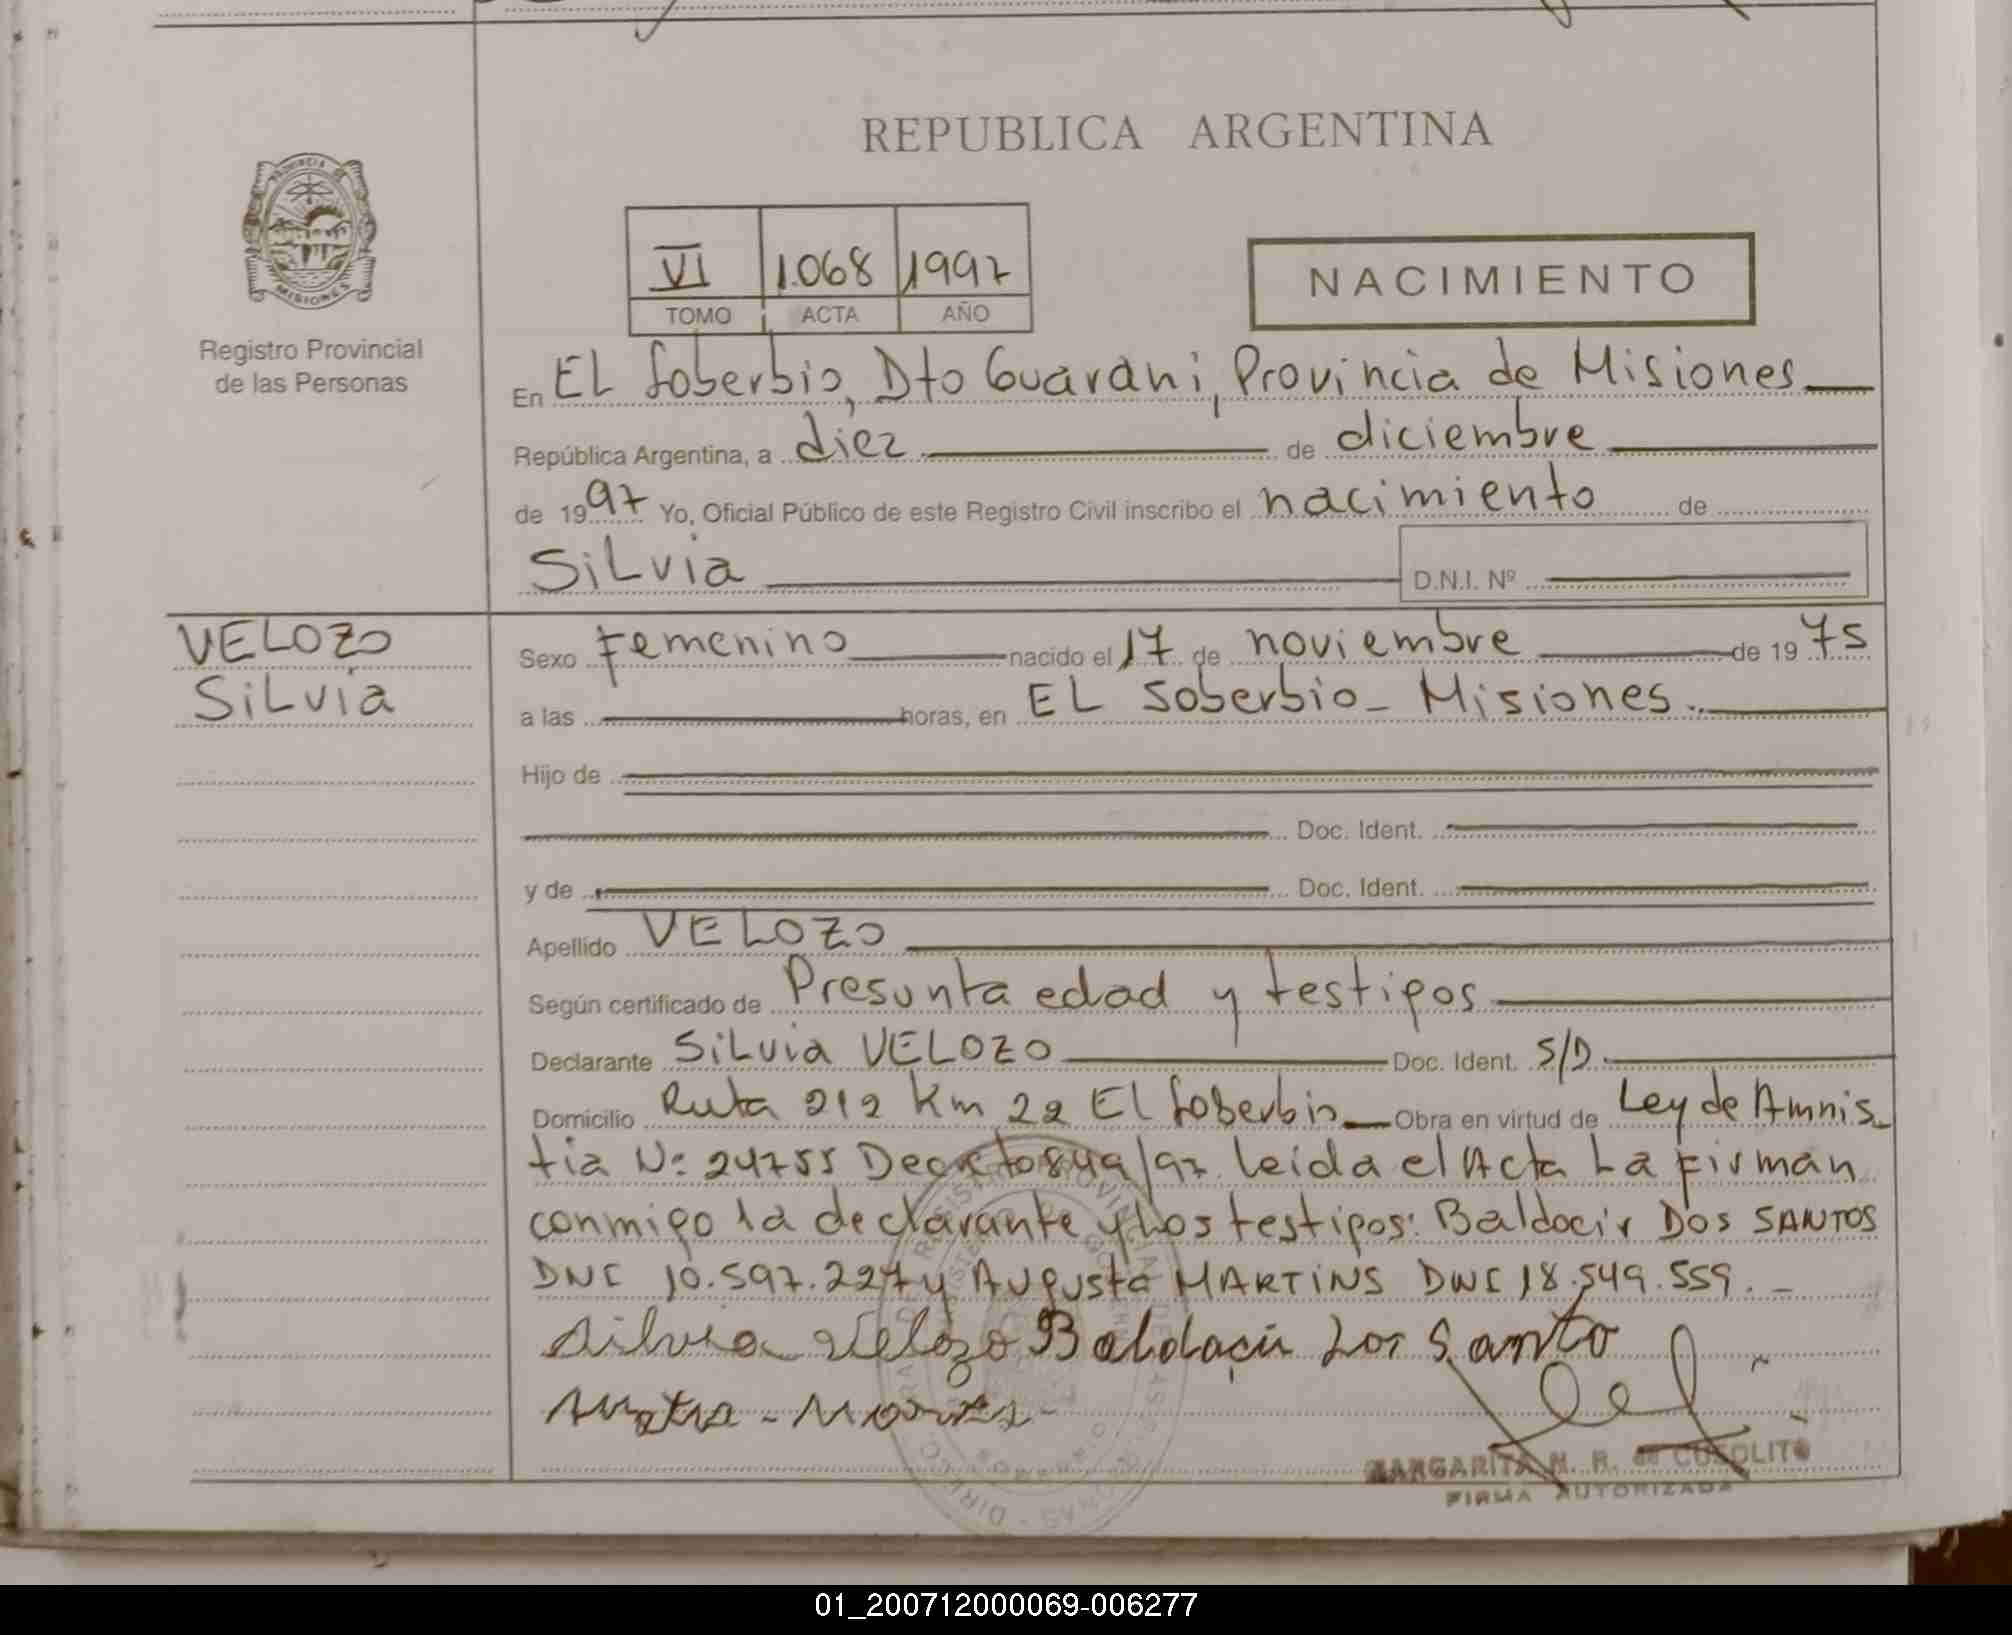 REPUBLICA ARGENTINA
PROVINCIA DE
MISIONES
Registro Provincial
de las Personas
VI 1.068 1997
TOMO ACTA AÑO
NACIMIENTO
En EL Soberbio, Dto Guarani, Provincia de Misiones
República Argentina, a diez de diciembre
de 1997 Yo, Oficial Público de este Registro Civil inscribo el nacimiento de
SiLvia D.N.I. Nº
VELOZO
SiLvia
Sexo femenino nacido el 17 de noviembre de 1975
a las horas, en EL Soberbio - Misiones.
Hijo de
Doc. Ident.
y de Doc. Ident.
Apellido VELOZO
Según certificado de Presunta edad y testigos
Declarante SiLvia VELOZO Doc. Ident. S/D.
Domicilio Ruta 212 Km 22 El Soberbio Obra en virtud de Ley de Amnis
tia Nº 24755 Decreto 849/97. Leida el Acta La firman
conmigo la declarante y Los testigos: Baldocir DOS SANTOS
DNI 10.597.227 y Augusto MARTINS DNI 18.549.559. -
Silvia Velozo Baldocir Dos Santo
MARGARITA N. R. de
FIRMA AUTORIZADA
01_200712000069-006277